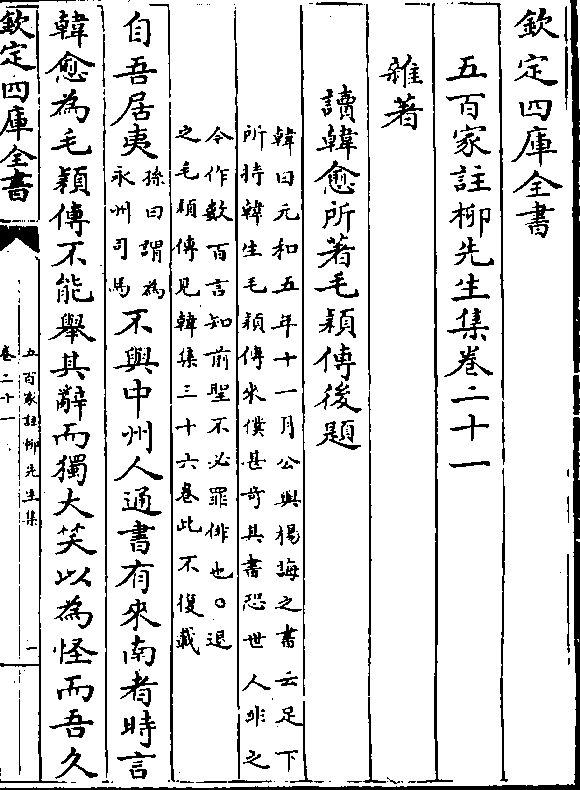 欽定四庫全書
五百家註柳先生集卷二十一
雜著
讀韓愈所著毛穎傳後題
韓曰元和五年十一月公與楊誨之書云足下
所持韓生毛穎傳來僕甚奇其書恐世人非之
今作數百言知前聖不必罪俳也○退
之毛穎傳見韓集三十六卷此不復載
自吾居夷孫曰謂為永州司馬不與中州人通書有來南者時言
韓愈為毛穎傳不能舉其辭而獨大笑以為怪而吾久
欽定四庫全書
五百家註柳先生集
卷二十一
一